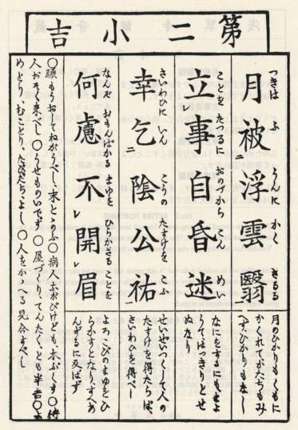 第二小吉
月被浮雲翳
つきは ふ うんに かく さるる
月のひかりもくもに
かくれてかたちもみ
へずひかりもなし
立事自昏迷
ことを たつるに おのづから こん めい
なにをするにもまよ
うてはつきりとせ
ぬなり
幸乞陰公祐
さいわひに いん こうの たすけを こふ
せいぜいつくして人の
たすけを得たらば
さいわひを得べし
何慮不開眉
なんぞ おもんぱかる まゆを ひらかざる ことを
よろこびのまゆをひ
らかすとなり、すへあ
んずるに及ばず
○願もうおしてねがうべし、末とゝのふ○病人 ども、本ぷくす○待
人おそく来べし○うせものいでず○屋づくり、てんたく、とも半吉○よ
めとり、むことり、たびだちよし○人をかゝへる見合すべし